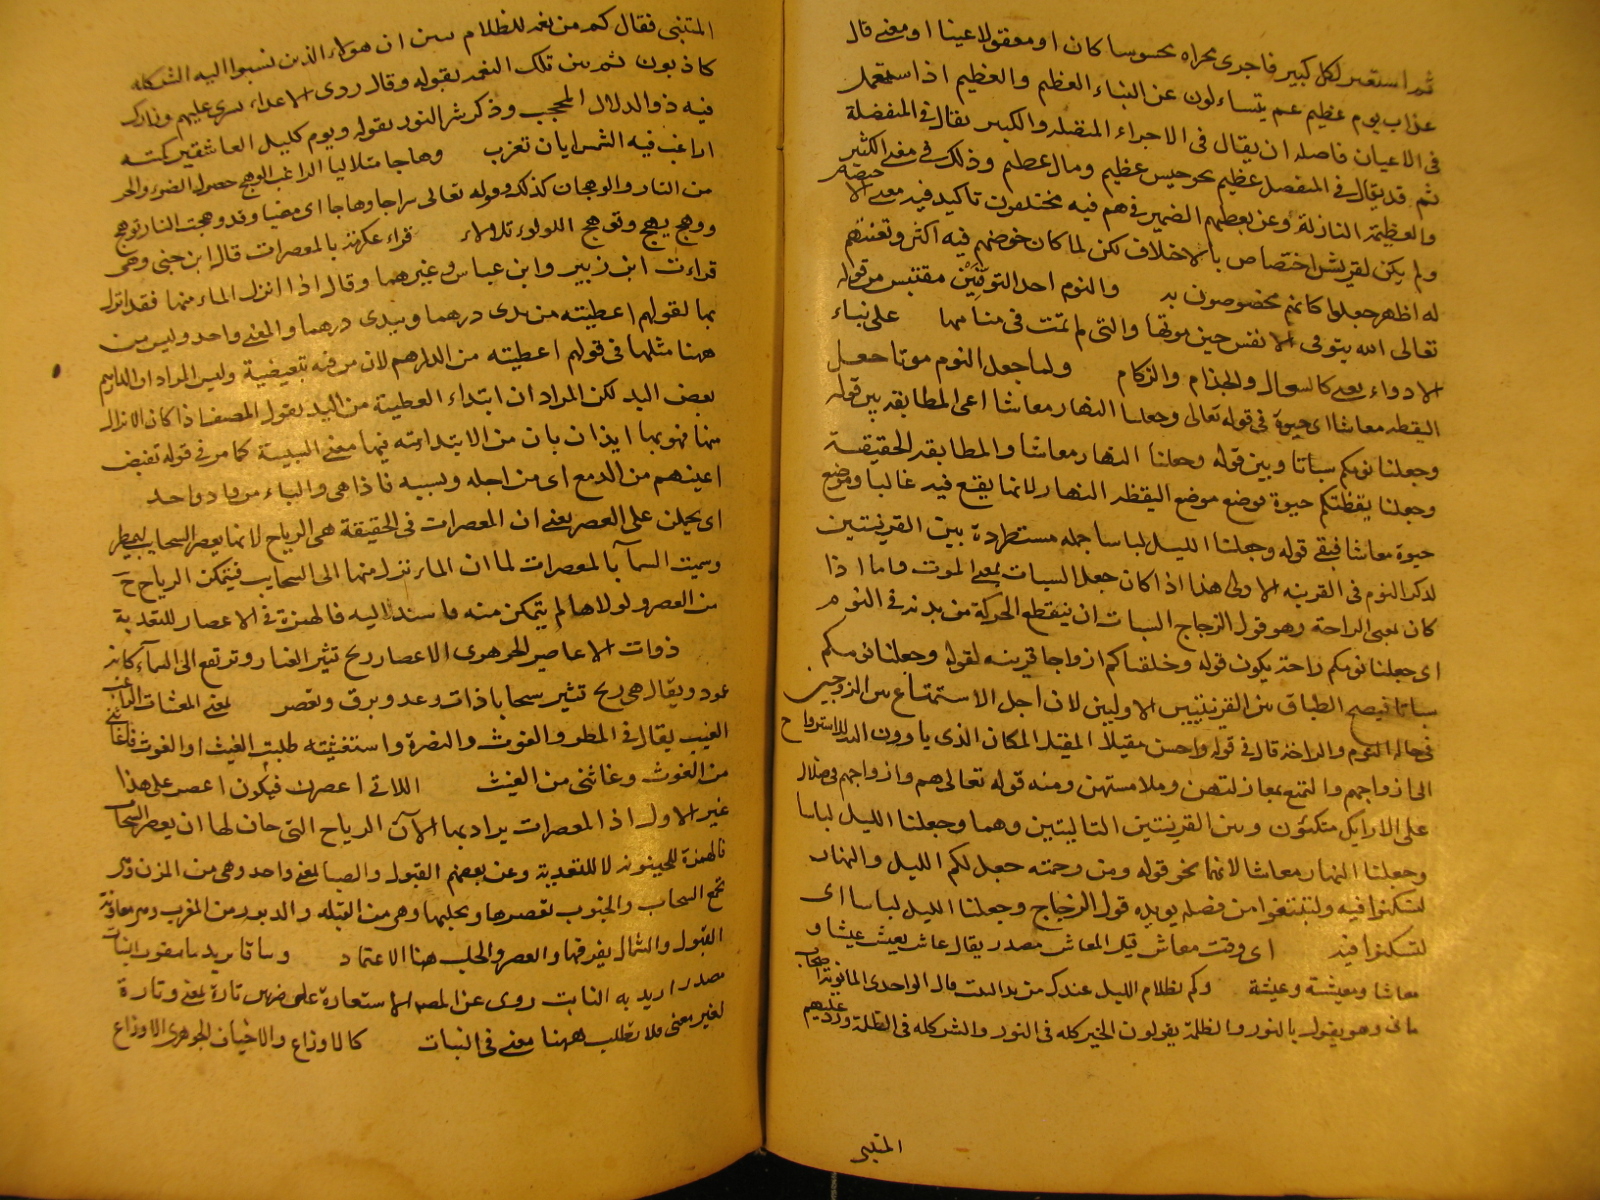 ثم استعير لكل كبير فاجرى مجراه محسوسا كان او معقولا عينا او معنى قال
عذاب يوم عظيم عم يتساءلون عن النباء العظيم والعظيم اذا استعمل
فى الاعيان فاصله ان يقال فى الاجزاء المتصلة والكبير يقال فى المنفصلة
ثم قد يقال فى المنفصل عظيم نحو جيش عظيم ومال عظيم وذلك فى معنى الكثير
والعظيمة النازلة وعن بعضهم الضمير فى هم فيه مختلفون تاكيد فيه معنى الا
ولم يكن لقريش اختصاص بالاختلاف لكن لما كان خوضهم فيه اكثر وتعنتهم
له اظهر جعلوا كانهم مخصوصون به والنوم احد التوفيين مقتبس من قوله
تعالى الله يتوفى الانفس حين موتها والتى لم تمت فى منامها على بناء
الادواء يعنى كالسعال والجذام والزكام ولما جعل النوم موتا جعل
اليقظة معاشا اى حيوة فى قوله تعالى وجعلنا النهار معاشا اعى المطابقة بين قوله
وجعلنا نومكم سباتا وبين قوله وجعلنا النهار معاشا والمطابقة الحقيقية
وجعلنا يقظتكم حيوة فوضع موضع اليقظة النهار لانها يقع فيه غالبا وموضع
حيوة معاشا فبقى قوله وجعلنا الليل لباسا جملة مستطردة بين القرينتين
لذكر النوم فى القرينة الاولى هذا اذا كان جعل السبات بمعنى الموت واما اذا
كان بمعنى الراحة وهو قول الزجاج السبات ان ينقطع الحركة من بدنه فى النوم
اى جعلنا نومكم راحة يكون قوله وخلقناكم ازواجا قرينة لقوله وجعلنا نومكم
سباتا فيصح الطباق بين القرينتين الاوليين لان اجل الاستمتاع بين الزوجين
فى حالة النوم والراحة قال فى قوله واحسن مقيلا المقيل المكان الذى ياوون اليه للاسترواح
الى ازواجهم والتمتع بمغازلتهن وملامستهن ومنه قوله تعالى هم وازواجهم فى ظلال
على الارائك متكئون وبين القرينتين التاليتين وهما وجعلنا الليل لباسا
وجعلنا النهار معاشا لانهما نحو قوله ومن رحمته جعل لكم الليل والنهار
لتسكنوا فيه ولتبتغوا من فضله يؤيده قول الزجاج وجعلنا الليل لباسا اى
لتسكنوا فيه اى وقت معاش قيل المعاش مصدر يقال عاش يعيش عيشا و
معاشا ومعيشة وعيشة وكم لظلام الليل عندك من يد البيت قال الواحدى المانوية اصحاب
مانى وهو يقول بالنور والظلمة يقولون الخير كله فى النور والشر كله فى الظلمة ورد عليهم
المتنبى
المتنبى فقال كم من نعمة للظلام تبين ان هؤلاء الذين نسبوا اليه الشر كله
كاذبون ثم بين تلك النعمة بقوله وقال ردى الاعداء تسرى عليهم وزارك
فيه ذو الدلال المحجب وذكر شر النور بقوله ويوم كليل العاشقين كمنته
اراغب فيه الشمس ايان تغرب وهاجا متلاليا الراغب الوهج حصول الضوء والحر
من النار والوهجان كذلك وقوله تعالى سراجا وهاجا اى مضيا وقد وهجت النار توهج
ووهج يهج وتوهج اللولوء تلالاء قراء عكرمة بالمعصرات قال ابن جنى وهى
قراءت ابن زبير وابن عباس وغيرهما وقال اذا انزل الماء منها فقد انزل
بها كقولهم اعطيته من يدى درهما وبيدى درهما والمعنى واحد وليس من
ههنا مثلها فى قولهم اعطيته من الدراهم لان من فيه تبعيضية وليس المراد ان الدراهم
بعض اليد لكن المراد ان ابتداء العطية من اليد يقول المصنف اذا كان الانزال
منها فهو بها ايذان بان من الابتدائية فيها معنى السببية كما مر فى قوله تفيض
اعينهم من الدمع اى من اجله وبسببه فاذا هى والباء من واد واحد
اى يحملن على العصر يعنى ان المعصرات فى الحقيقة هى الرياح لانها يعصر السحاب ليمطر
وسميت السماء بالمعصرات لما ان الماء نزل منها الى السحاب فيتمكن الرياح ح
من العصر ولولاها لم يتمكن منه فاسند اليه فالهمزة فى الاعصار للتعدية
ذوات الاعاصير الجوهرى الاعصار ريح تثير الغبار وترتفع الى السماء كانه
عمود ويقال هى ريح تثير سحابا ذات رعد وبرق وتعصر بمعنى المغيثات الراغب
الغيث يقال فى المطر والغوث والنصرة واستغيثته طلبت الغيث او الغوث فاغاثنى
من الغوث وغاثنى من الغيث اللاتى اعصرت فيكون اعصر على هذا
غير الاول اذ المعصرات يراد بها الآن الرياح التى حان لها ان يعصر السحاب
فالهمزة للحينونة لا للتعدية وعن بعضهم القبول والصبا بمعنى واحد وهى من المزن
تجمع السحاب والجنوب تعصرها ويحلبها وهى من القبلة والدبور من المغرب
القبول والشمال يفرقها والعصر والحلب هنا الاعتماد وساتا يريد
مصدر اريد به النابت روى عن المصنف الاستعارة على ضربين تارة لمعنى وتارة
لغير معنى فلا يطلب ههنا معنى فى النبات كالاوزاع والاخياف الجوهرى الاوزاع